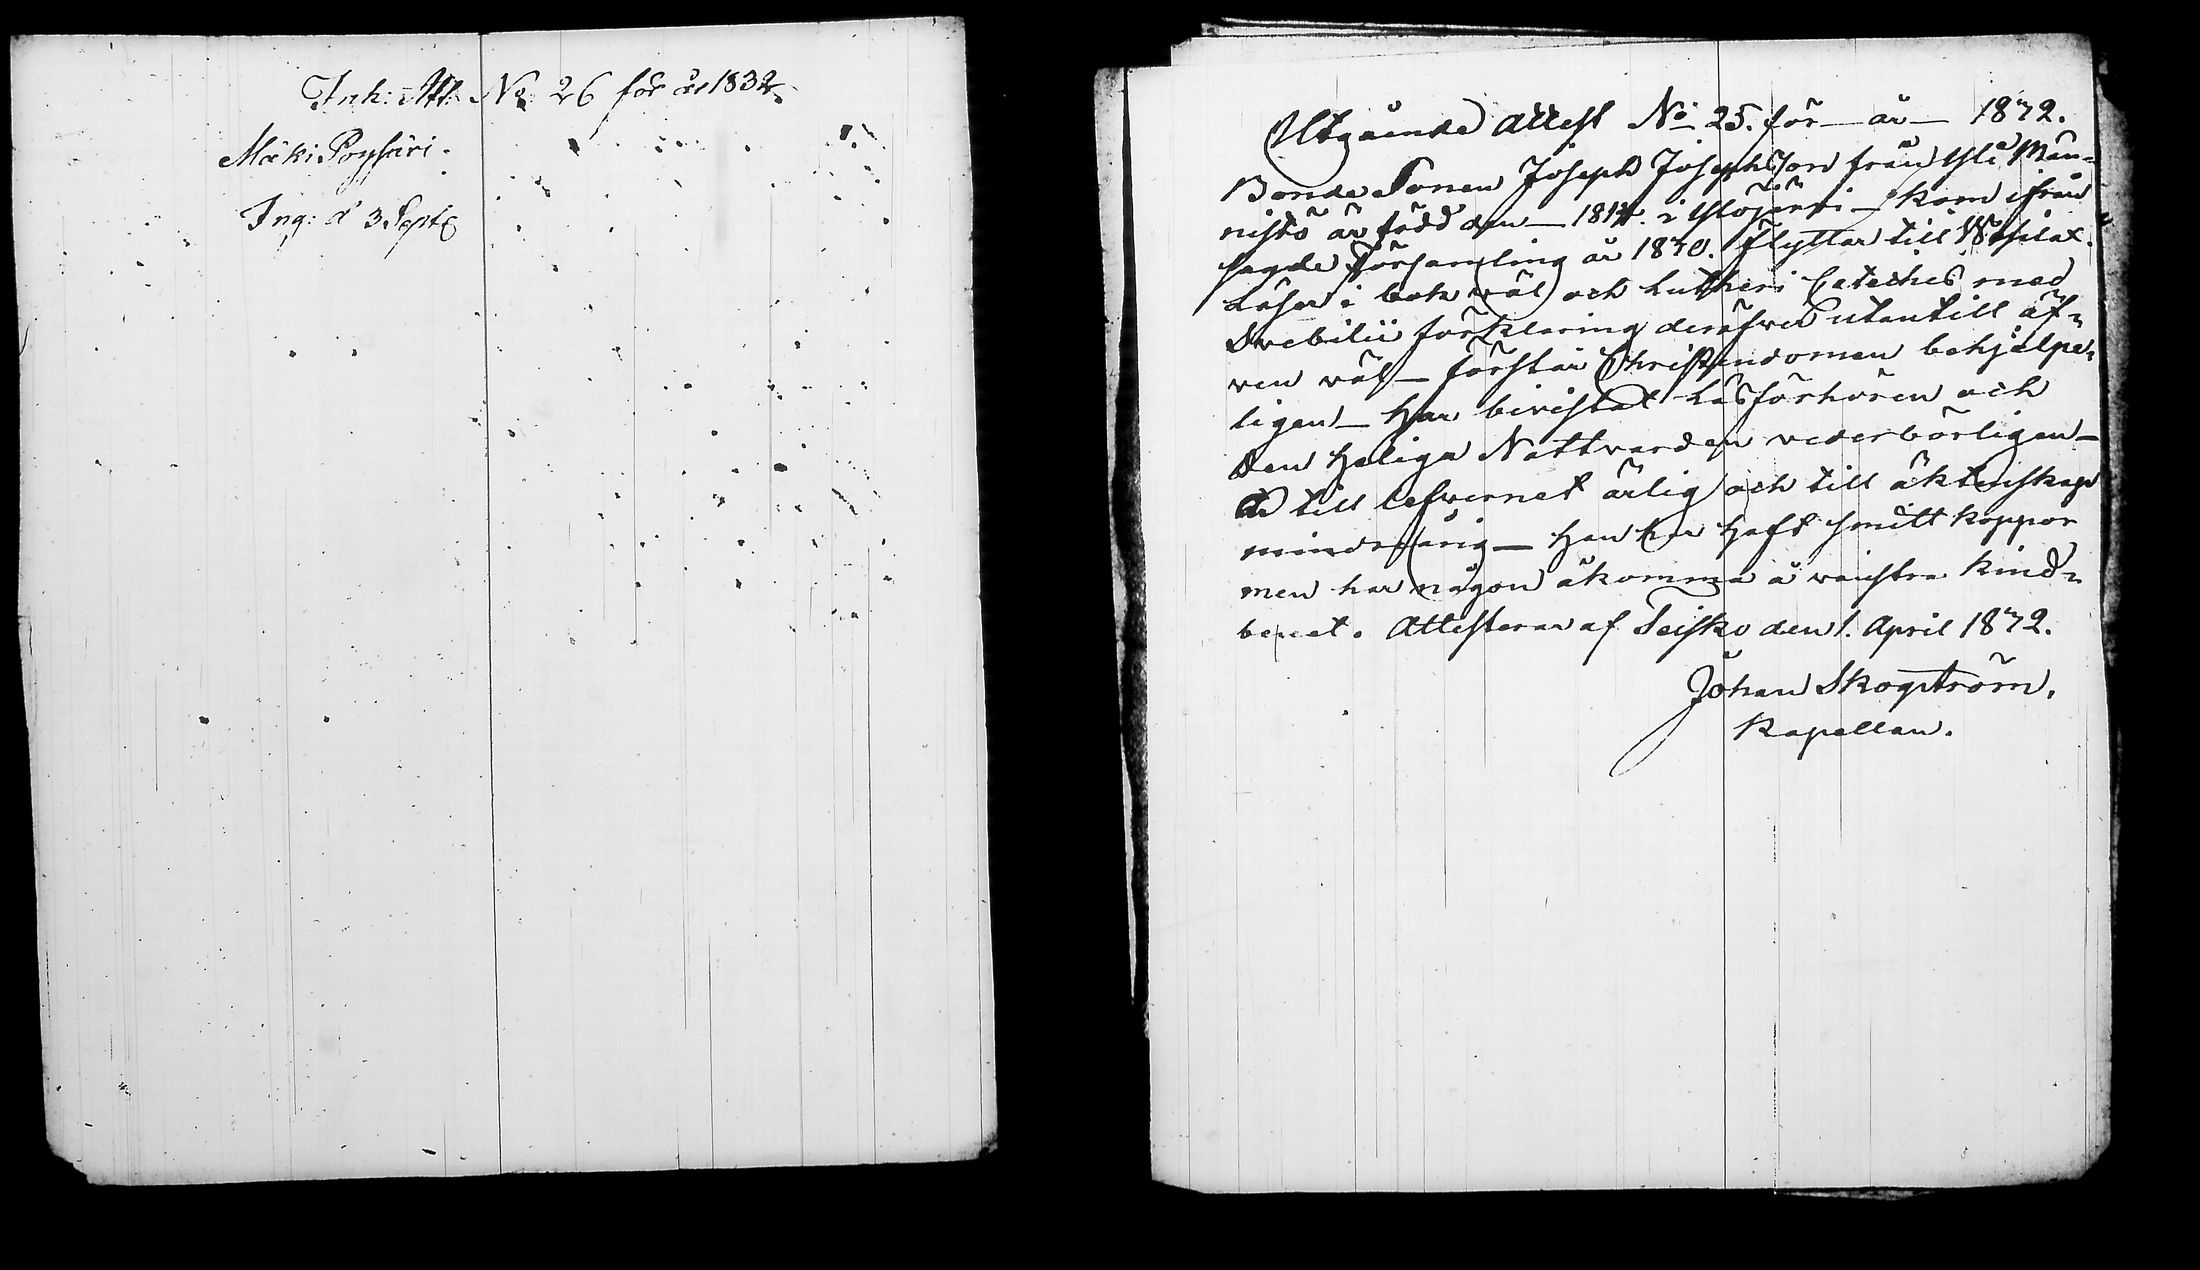 Ink: Att. No 26 för år 1832.
Mäki Poysäri.
Ing: d 3 Sept
Utgående Attest No 25. för — år — 1832.
Bonde Sonen Joseph Josephsson från Yli Män-
nistö är född den — 1814. i Ylöjärvi — kom ifrån
sagde Församling år 1830. flyttar till
Läser i bok väl och Lutheri Cateches med
Svebilii förklaring deröfver utantill äf-
ven väl — förstår Christendomen behjelpe-
ligen — Har bivistat Läsförhören och
den Heliga Nattvarden vederbörligen —
är till lefvernet ärlig och till äktenskap
minderårig — Han har haft smitt koppor
men har någon åkomma å vänstra Kind-
benet. Attesterar af Teisko den 1. April 1832.
Johan Skogström.
Kapellan.